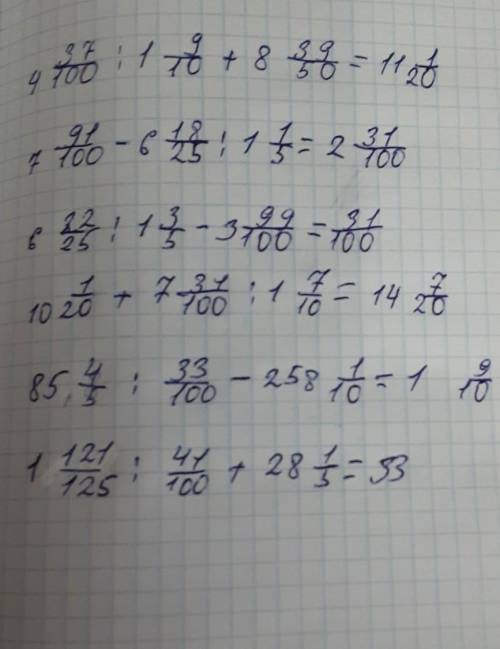 4 37/100 : 1 9/10 + 8 39/50 = 11 1/20
7 91/100 - 6 18/25 : 1 1/5 = 2 31/100
6 22/25 : 1 3/5 - 3 99/100 = 31/100
10 1/20 + 7 31/100 : 1 7/10 = 14 7/20
85, 4/5 : 33/100 - 258 1/10 = 1 9/10
1 121/125 : 41/100 + 28 1/5 = 33